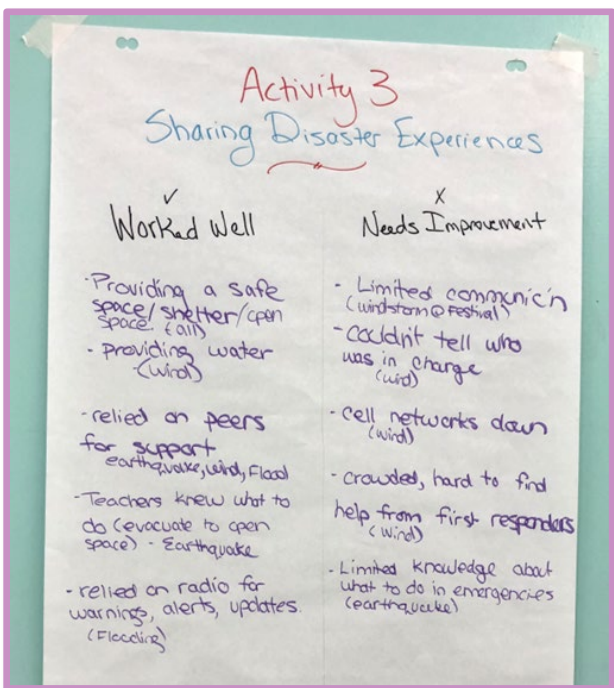 Activity 3
Sharing Disaster Experiences
✓
Worked Well
- Providing a safe
space/shelter/open
space. (all)
- providing water
- (wind)
- relied on peers
for support
earthquake, wind, Flood
- Teachers knew what to
do (evacuate to open
space) - Earthquake
- relied on radio for
warnings, alerts, updates.
(Flooding)
X
Needs Improvement
- Limited communic'n
(windstorm @ Festival)
- couldn't tell who
was in charge
(wind)
- cell networks down
(wind)
- crowded, hard to find
help from first responders
(wind)
- Limited knowledge about
what to do in emergencies
(earthquake)